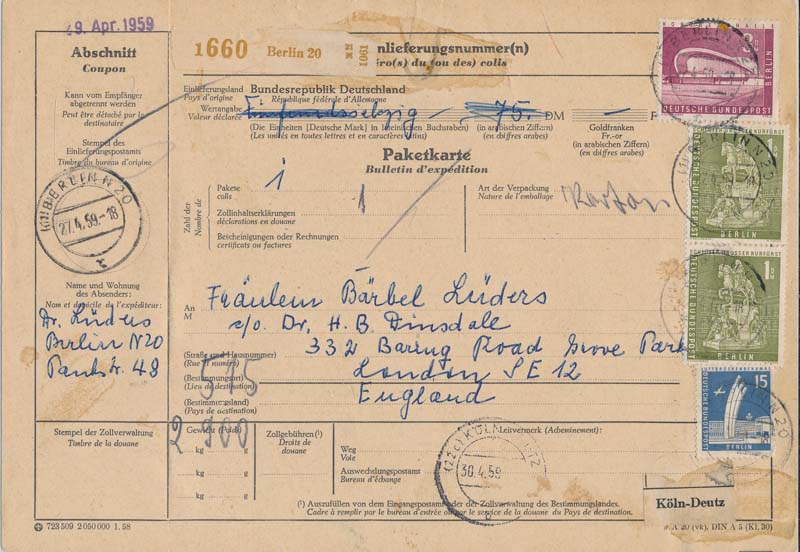 29. Apr. 1959
Abschnitt
Coupon
Kann vom Empfänger
abgetrennt werden
Peut être détaché par le
destinataire
Stempel des
Einlieferungspostamts
Timbre du bureau d'origine
(1) BERLIN N 20
27.4.59.-18
Name und Wohnung
des Absenders:
Nom et domicile de l'expéditeur:
Dr. Lüders
Berlin N20
Pankstr. 48
Stempel der Zollverwaltung
Timbre de la douane
723509 2050000 1.58
1660 Berlin 20
1061
nlieferungsnummer(n)
éro(s) du (ou des) colis
Einlieferungsland Bundesrepublik Deutschland
Pays d'origine République fédérale d'Allemagne
Wertangabe Fünfundsiebzig 75.- DM — F
Valeur déclarée
(Die Einheiten [Deutsche Mark] in lateinischen Buchstaben) (in arabischen Ziffern)
(Les unités en toutes lettres et en caractères latins) (en chiffres arabes)
Goldfranken
Fr.-or
(in arabischen Ziffern)
(en chiffres arabes)
Paketkarte
Bulletin d'expédition
Zahl der
Nombre de
Pakete 1
colis
Zollinhaltserklärungen 1
déclarations en douane
Bescheinigungen oder Rechnungen
certificats ou factures
Art der Verpackung Karton
Nature de l'emballage
An
M
Fräulein Bärbel Lüders
c/o. Dr. H. B. Dinsdale
332 Baring Road Grove Park
London SE 12
England
Straße und Hausnummer)
(Rue et numéro)
(Bestimmungsort)
(Lieu de destination)
(Bestimmungsland)
(Pays de destination)
575
2 900
Gewicht (Poids)
kg g
kg g
kg g
Zollgebühren (¹)
Droits de
douane
Leitvermerk (Acheminement):
Weg
Voie
Auswechslungspostamt
Bureau d'échange
30.4.59
Köln-Deutz
(¹) Auszufüllen von dem Eingangspostamt oder der Zollverwaltung des Bestimmungslandes.
Cadre à remplir par le bureau d'entrée ou par le service de la douane du Pays de destination.
A 20 (vk), DIN A 5 (Kl. 30)
BERLIN
DEUTSCHE BUNDESPOST
DEUTSCHE BUNDESPOST
BERLIN
DEUTSCHE BUNDESPOST
BERLIN
15
DEUTSCHE BUNDESPOST
BERLIN